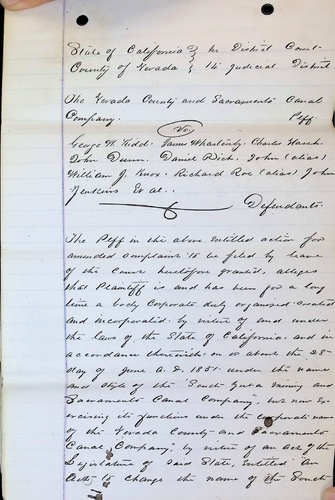 State of California } In District Court
County of Nevada } 14 Judicial District
The Nevada County and Sacramento Canal
Company. Plff
Vs
George W. Kidd. James Whartenby. Charles Marsh
John Dunn. Daniel Rich. John (alias)
William J. Knox. Richard Roe (alias) John
Jenkins Et al..
Defendants.
The Plff in the above entitled action for
amended complaint to be filed by leave
of the Court heretofore granted, alleges
that Plaintiff is and has been for a long
time a body Corporate duly organized created
and incorporated, by virtue of and under
the laws of the State of California, and in
accordance therewith; on or about the 28
day of June A.D. 1851. under the name
and style of the "South Yuba Mining and
Sacramento Canal Company", but now Ex-
ercising its functions under the corporate name
of the "Nevada County and Sacramento
Canal Company," by virtue of an Act of the
Legislature of said State, Entitled "An
Act, to Change the name of the South